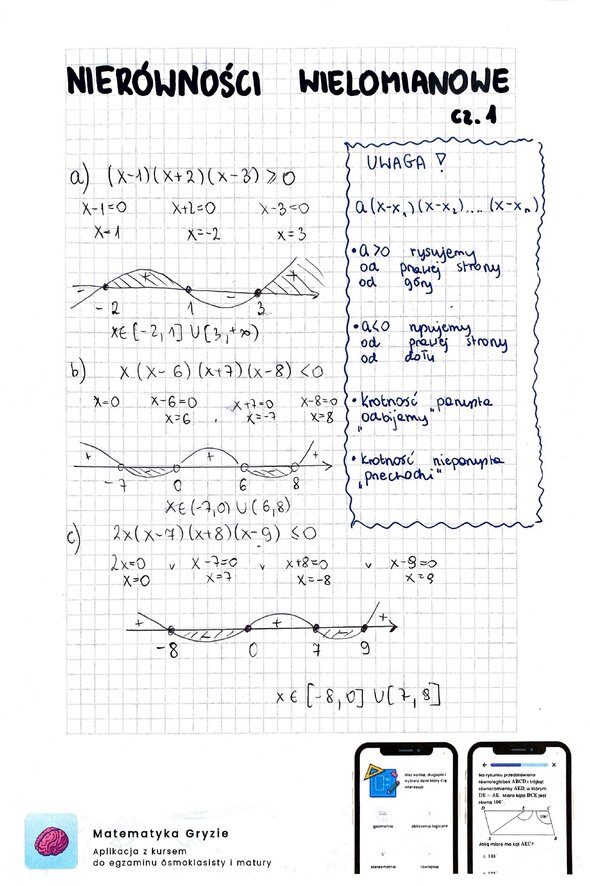 NIERÓWNOŚCI WIELOMIANOWE
cz. 1
a) (x-1)(x+2)(x-3) ⩾ 0
x-1=0 x+2=0 x-3=0
x=1 x=-2 x=3
- + - +
-2 1 3
x∈[-2,1]∪[3,+∞)
b) x(x-6)(x+7)(x-8) < 0
x=0 x-6=0 x+7=0 x-8=0
x=6 x=-7 x=8
+ - + - +
-7 0 6 8
x∈(-7,0)∪(6,8)
c) 2x(x-7)(x+8)(x-9) ≤ 0
2x=0 v x-7=0 v x+8=0 v x-9=0
x=0 x=7 x=-8 x=9
+ - + - +
-8 0 7 9
x∈[-8,0]∪[7,9]
UWAGA !
a(x-x₁)(x-x₂)....(x-xₙ)
• a>0 rysujemy
od prawej strony
od góry
• a<0 rysujemy
od prawej strony
od dołu
• Krotność parzysta
„odbijamy"
• Krotność nieparzysta
„przechodzi"
Matematyka Gryzie
Aplikacja z kursem
do egzaminu ósmoklasisty i matury
Weź kartkę, długopis i
wybierz dział który Cię
interesuje
geometria obliczenia logiczne
stereometria równania
Na rysunku przedstawiono
równoległobok ABCD i trójkąt
równoramienny AED, w którym
DE = AE. Miara kąta BCE jest
równa 106°.
D E C
106°
A B
Jaką miarę ma kąt AEC?